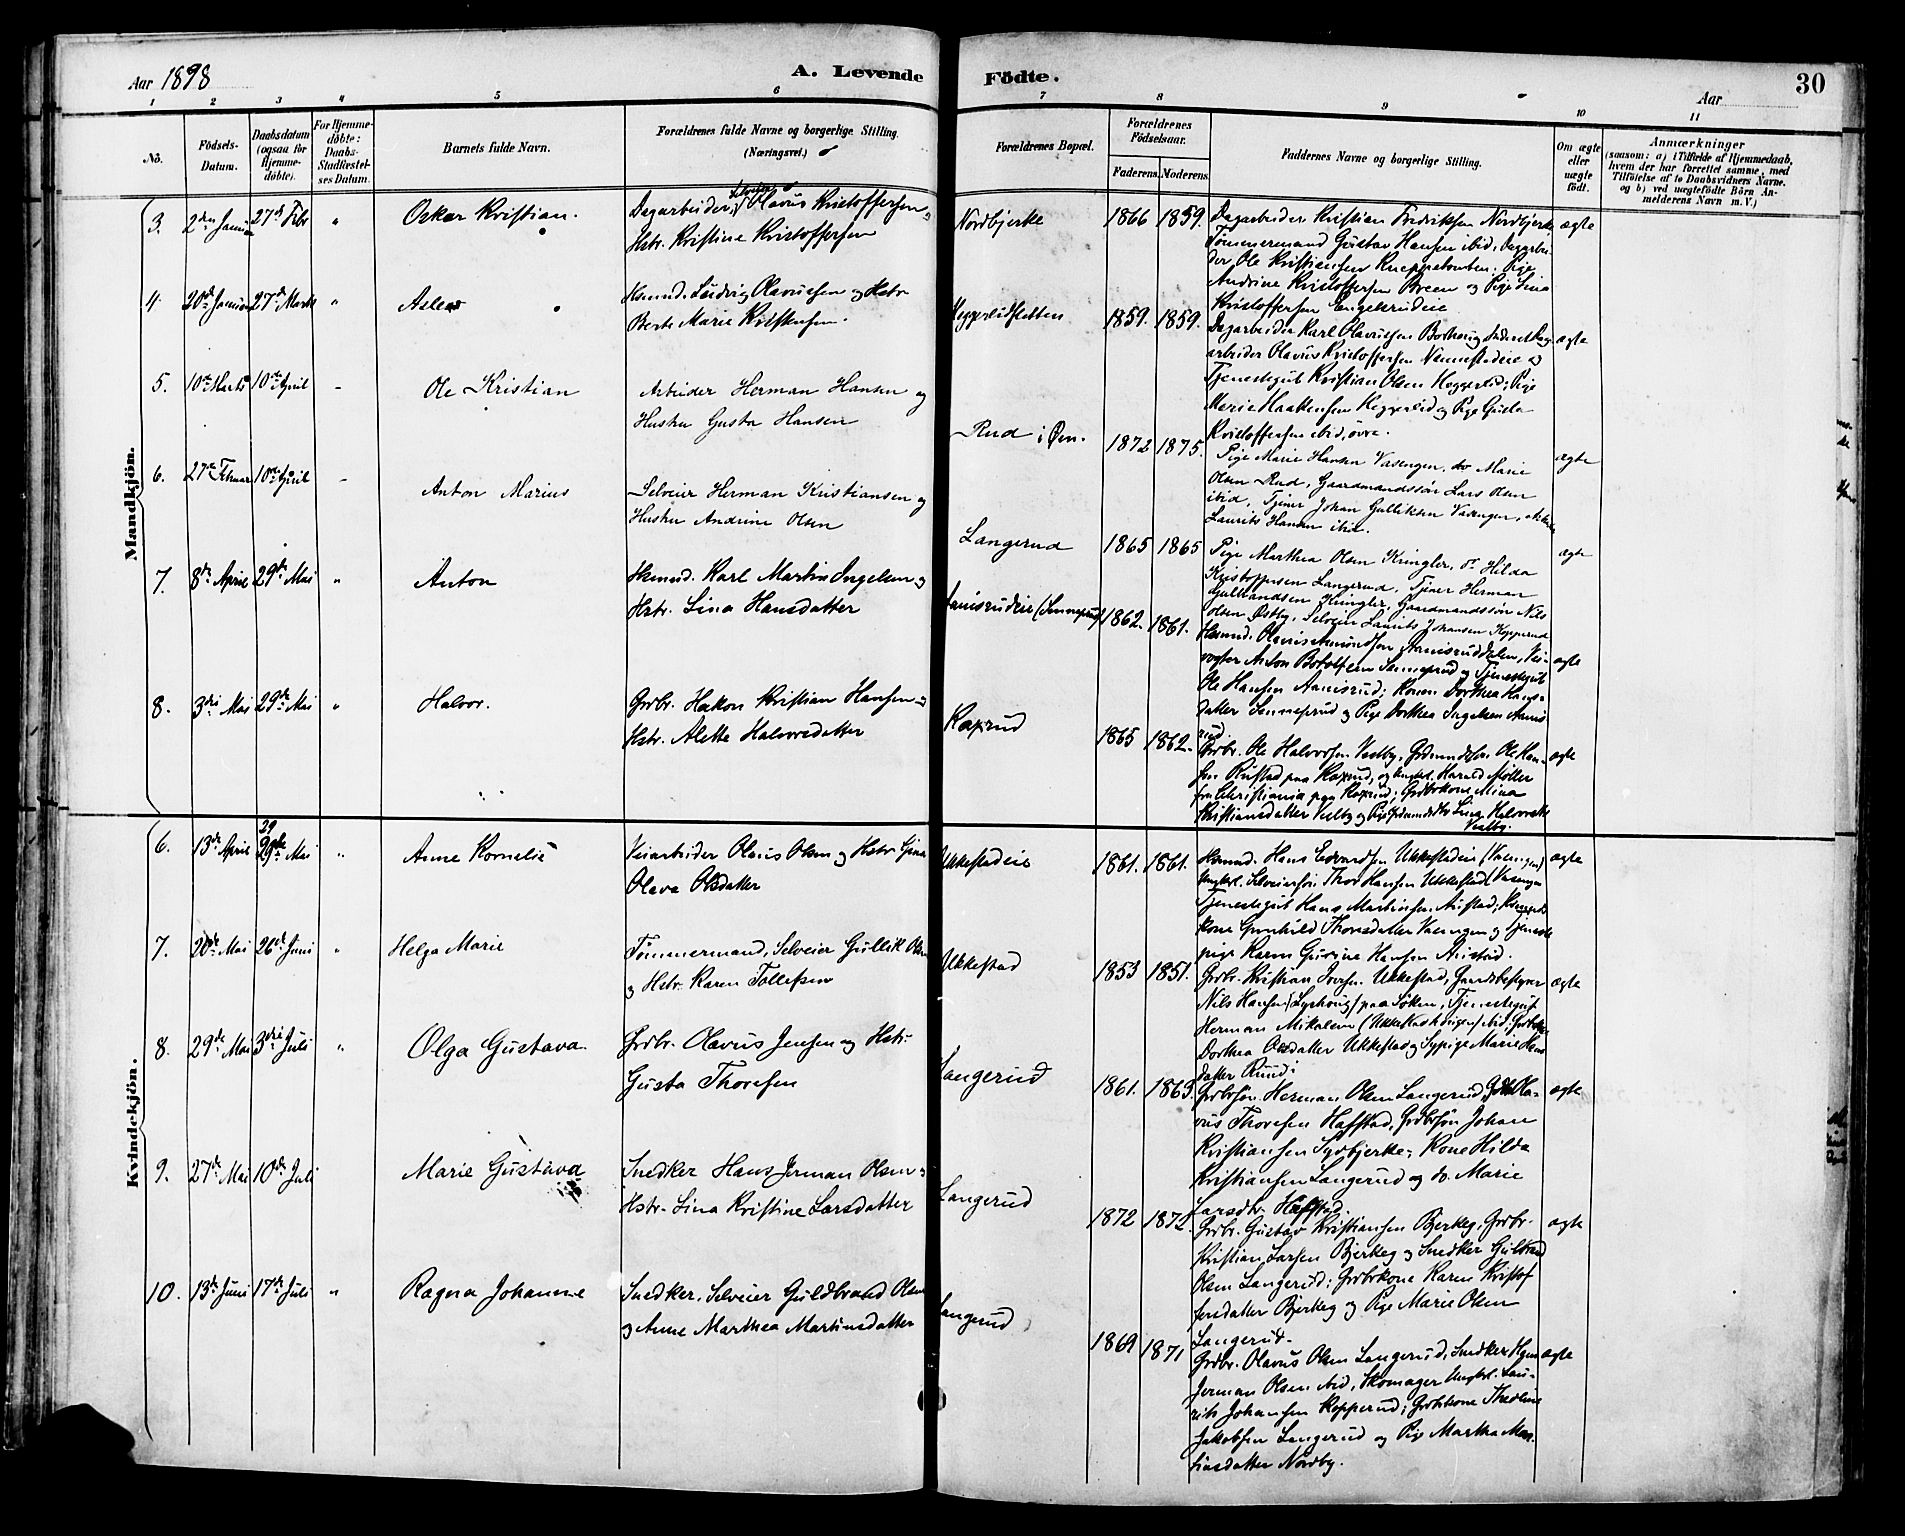 Aar 1898
A. Levende Födte.
Aar
30
1 2 3 4 5 6 7 8 9 10 11
No.
Födsels-Datum.
Daabsdatum (ogsaa for Hjemme-döbte).
For Hjemme-döbte: Daabs-Stadfæstel-ses Datum.
Barnets fulde Navn.
Forældrenes fulde Navne og borgerlige Stilling. (Næringsvei.)
Forældrenes Bopæl.
Forældrenes Födselsaar.
Faderens. Moderens.
Faddernes Navne og borgerlige Stilling.
Om ægte eller uægte födt.
Anmærkninger
(saasom: a) i Tilfælde af Hjemmedaab,
hvem der har forrettet samme, med
Tilföielse af to Daabsvidners Navne.
og b) ved uægtefödte Börn An-
melderens Navn m. V.)
Mandkjön.
3. 2den Januar 27de Febr " Oskar Kristian.
Dagarbeider, Selveier Olavus Kristoffersen og
Hstr. Kristine Kristoffersen
Nordbjerke 1866 1859.
Dagarbeider Kristian Fredriksen Nordbjerke
Tömmermand Gustav Hansen ibid, Dagarbei-
der Ole Kristiansen Pige
Andrine Kristoffersen Breen og Pige Lina
Kristoffersen Engelsrudeie
ægte
4. 20de Januar 27de Marts " Aslev
Hsmnd. Ludvig Olavesen og Hstr
Berte Marie Kristensen.
Heggelidsletten 1859. 1859.
Dagarbeider Karl Olavesen Dag-
arbeider Olavus Kristoffersen Nannestadeie og
Tjenestegut Kristian Olsen Heggelid; Pige
Marie Haakensen Heggelid og Pige Gusta
Kristoffersen ibid, övre.
ægte
5. 10de Marts 10de April - Ole Kristian
Arbeider Herman Hansen og
Hustru Gusta Hansen
Rud i Øvn. 1872 1875.
Pige Marie Hansen Vasengen, do Marie
Olsen Rud, Gaardmandssön Lars Olsen
ibid, Tjener Johan Gulliksen Vasengen,
Laurits Hansen ibid.
ægte
6. 27de Februar 10de April - Anton Marius
Selveier Herman Kristiansen og
Hustru Andrine Olsen
Langerud 1865 1865
Pige Marthea Olsen Kringler, do Hilda
Kristoffersen Langerud, Tjener Herman
Gulbrandsen Kringler, Gaardmandssön Nils
Olsen Østby, Selveier Laurits Johansen Kopperud
ægte
7. 8de April 29de Mai " Anton
Hsmnd. Karl Martin Ingelsen og
Hstr. Lina Hansdatter
Aamisrudeie (Senneprud) 1862. 1861.
Hsmnd. Olavus Amundsen Aamisruddalen, Vei-
vogter Anton Botolfsen Senneprud og Tjenestegut
Ole Hansen Aamisrud; Konen Dorthea Hans-
datter Senneprud og Pige Dorthea Ingelsen Aamis-
rud.
ægte
8. 3die Mai 29de Mai " Halvor.
Grdbr. Hakon Kristian Hansen og
Hstr. Alette Halvorsdatter
Raprud 1865 1862.
Grdbr. Ole Halvorsen Vestby, Grdmandssön Ole Han-
sen Rustad paa Raprud, og Ungkl. Harald Möller
fra Christiania paa Raprud; Grdbrkone Mina
Kristiansdatter Vestby og Pige Lina Halvorsdtr
Vestby.
ægte
Kvindekjön.
6. 13de April 29de Mai " Anne Kornelie
Veiarbeider Olaus Olsen og Hstr Gina
Olava Olsdatter
Ukkestadeie 1861. 1861.
Hsmnd. Hans Edvardsen Ukkestadeie (Vaengen)
Ungkl. Selveiersön Thor Hansen Ukkestad (Vasengen
Tjenestegut Hans Martinsen Austad;
kone Gunhild Thorsdatter Vaengen og Tjeneste-
pige Karen Gurine Hansen Austad.
ægte
7. 20de Mai 26de Juni " Helga Marie
Tömmermand, Selveier Gullik Olsen
og Hstr. Karen Tollefsen
Ukkestad 1853 1851.
Grdbr. Kristian Iversen Ukkestad, Gaardsbestyrer
Nils Hansen (Lyshoug) paa Söken, Tjenestegut
Herman Mikalsen (Ukkestadhoigen) ibid;
Dorthea Olsdatter Ukkestad og Sypige Marie Hans-
datter Ruud;
ægte
8. 29de Mai 3die Juli " Olga Gustava
Grdbr. Olavus Jensen og Hstr.
Gusta Thoresen
Langerud 1861. 1863.
Grdbrsön Herman Olsen Langerud, Grdbr Ola-
vus Thoresen Hafstad, Grdbrsön Johan
Kristiansen Sydbjerke; Kone Hilda
Kristiansen Langerud og do. Marie
Larsdtr Hafstad.
ægte
9. 27de Mai 10de Juli Marie Gustava
Snedker Hans Jerman Olsen og
Hstr. Lina Kristine Larsdatter
Langerud 1872 1872.
Grdbr. Gustav Kristiansen Bjerkeg, Grdbr.
Kristian Larsen Bjerkeg og Snedker Gulbrand
Olsen Langerud; Grdbrkone Karen Kristof-
fersdatter Bjerkeg og Pige Marie Olsen
Langerud.
ægte
10. 13de Juni 17de Juli " Ragna Johanne
Snedker, Selveier Guldbrand Olsen
og Anne Marthea Martinsdatter
Langerud 1869 1871
Grdbr. Olavus Olsen Langerud, Snedker Hans
Jerman Olsen ibid, Skomager Ungkl. Lau-
rits Johansen Kopperud; Grdbrkone Thedline
Jakobsen Langerud og Pige Martha Mar-
tinsdatter Nordby.
ægte